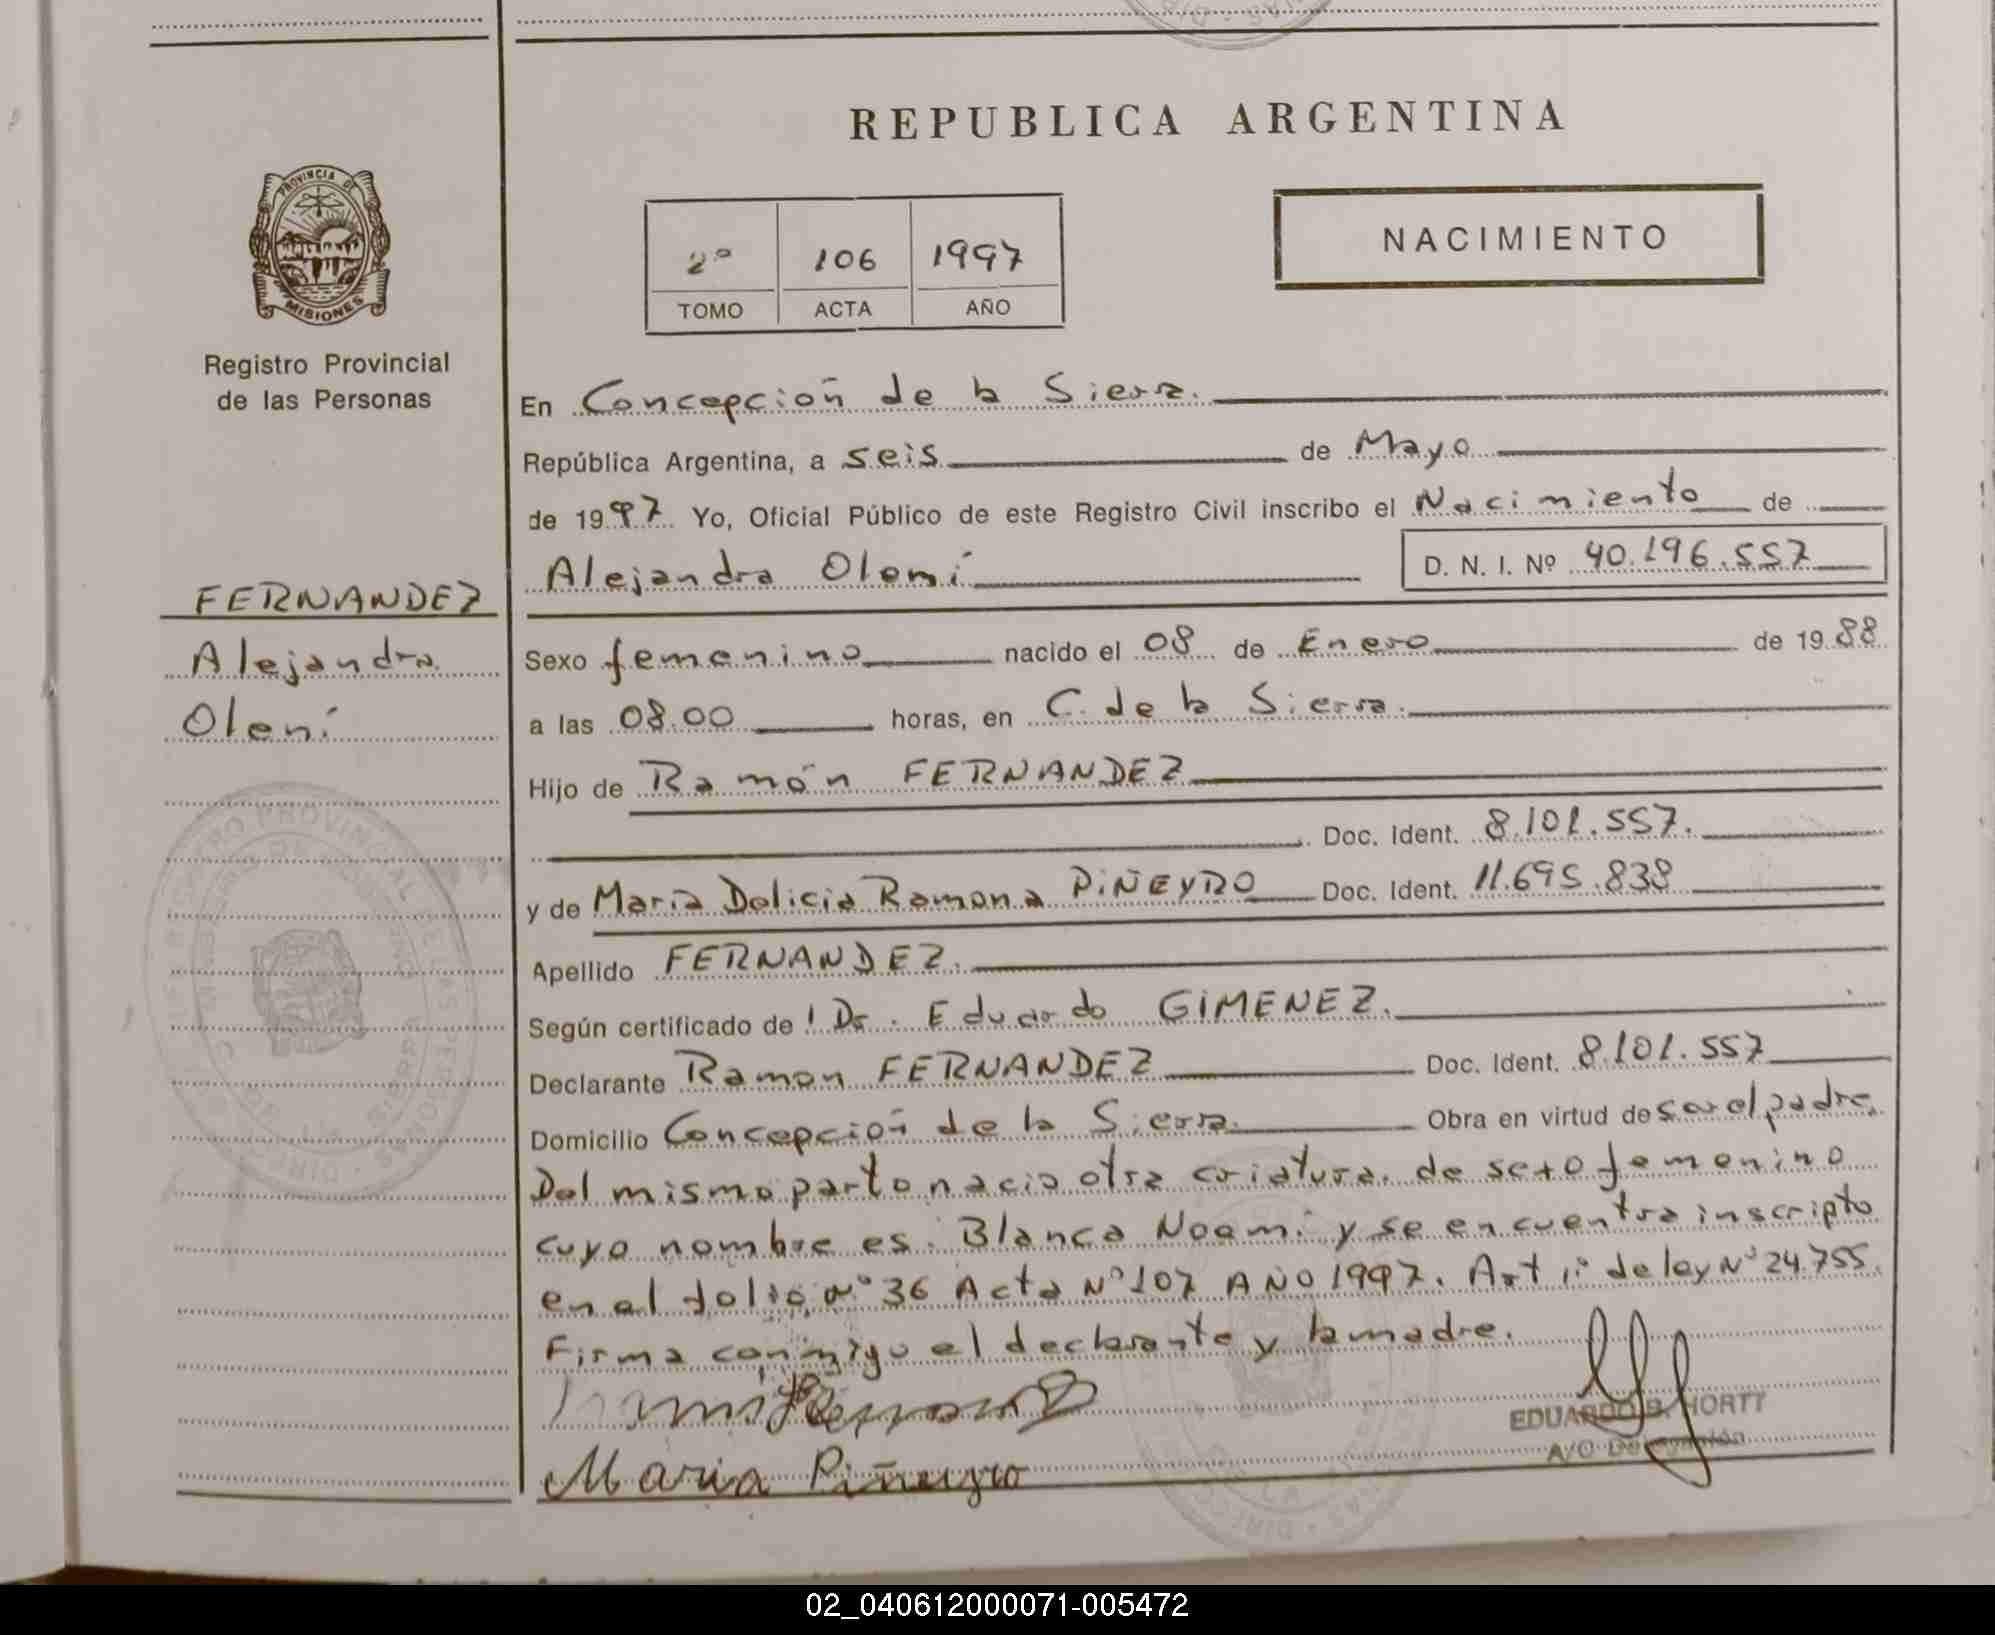 REPUBLICA ARGENTINA
PROVINCIA DE
MISIONES
Registro Provincial
de las Personas
2º 106 1997
TOMO ACTA AÑO
NACIMIENTO
En Concepción de la Sierra.
República Argentina, a seis de Mayo
de 1997 Yo, Oficial Público de este Registro Civil inscribo el Nacimiento de
Alejandra Olení D. N. I. Nº 40.196.557
FERNANDEZ
Alejandra
Olení
Sexo femenino nacido el 08 de Enero de 1988
a las 08.00 horas, en C. de la Sierra.
Hijo de Ramón FERNANDEZ
Doc. Ident. 8.101.557.
y de María Delicia Ramona PIÑEYRO Doc. Ident. 11.695.838
Apellido FERNANDEZ.
Según certificado de l Dr. Eduardo GIMENEZ.
Declarante Ramon FERNANDEZ Doc. Ident. 8.101.557
Domicilio Concepción de la Sierra. Obra en virtud de ser el padre.
Del mismo parto nacio otra criatura de sexo femenino
cuyo nombre es: Blanca Noemí y se encuentra inscripto
en el folio nº 36 Acta Nº 107 AÑO 1997. Art 1º de ley Nº 24.755.
Firma conmigo el declarante y la madre.
EDUARDO B. HORTT
A/C Delegación
Maria Piñeyro
02_040612000071-005472